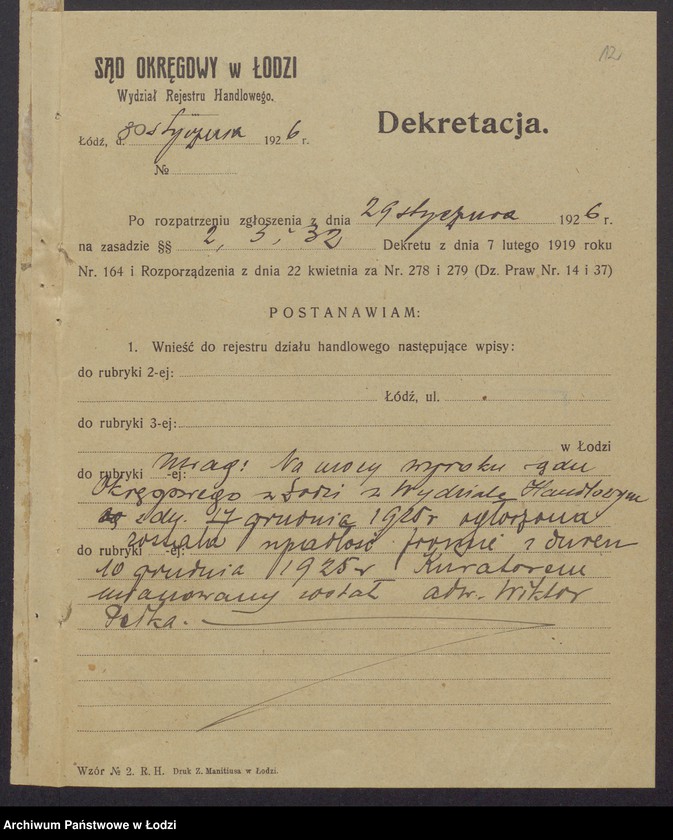 12
SĄD OKRĘGOWY w ŁODZI
Wydział Rejestru Handlowego.
Dekretacja.
Łódź, d. 30 stycznia 1926 r.
№
Po rozpatrzeniu zgłoszenia z dnia 29 stycznia 1926 r.
na zasadzie §§ 2, 5, i 32 Dekretu z dnia 7 lutego 1919 roku
Nr. 164 i Rozporządzenia z dnia 22 kwietnia za Nr. 278 i 279 (Dz. Praw Nr. 14 i 37)
POSTANAWIAM:
1. Wnieść do rejestru działu handlowego następujące wpisy:
do rubryki 2-ej:
Łódź, ul.
do rubryki 3-ej:
w Łodzi
do rubryki -ej: Na mocy wyroku Sądu
Okręgowego w Łodzi z Wydziału Handlowym
z dn. 17 grudnia 1925 r ogłoszona
do rubryki -ej: została upadłość firmie z dniem
10 grudnia 1925 r Kuratorem
mianowany został adw. Wiktor
Pełka.
Wzór № 2. R. H. Druk Z. Manitiusa w Łodzi.
Archiwum Państwowe w Łodzi